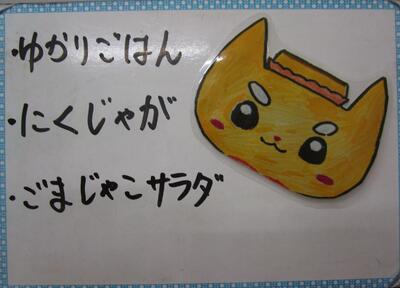 ・ゆかりごはん
・にくじゃが
・ごまじゃこサラダ